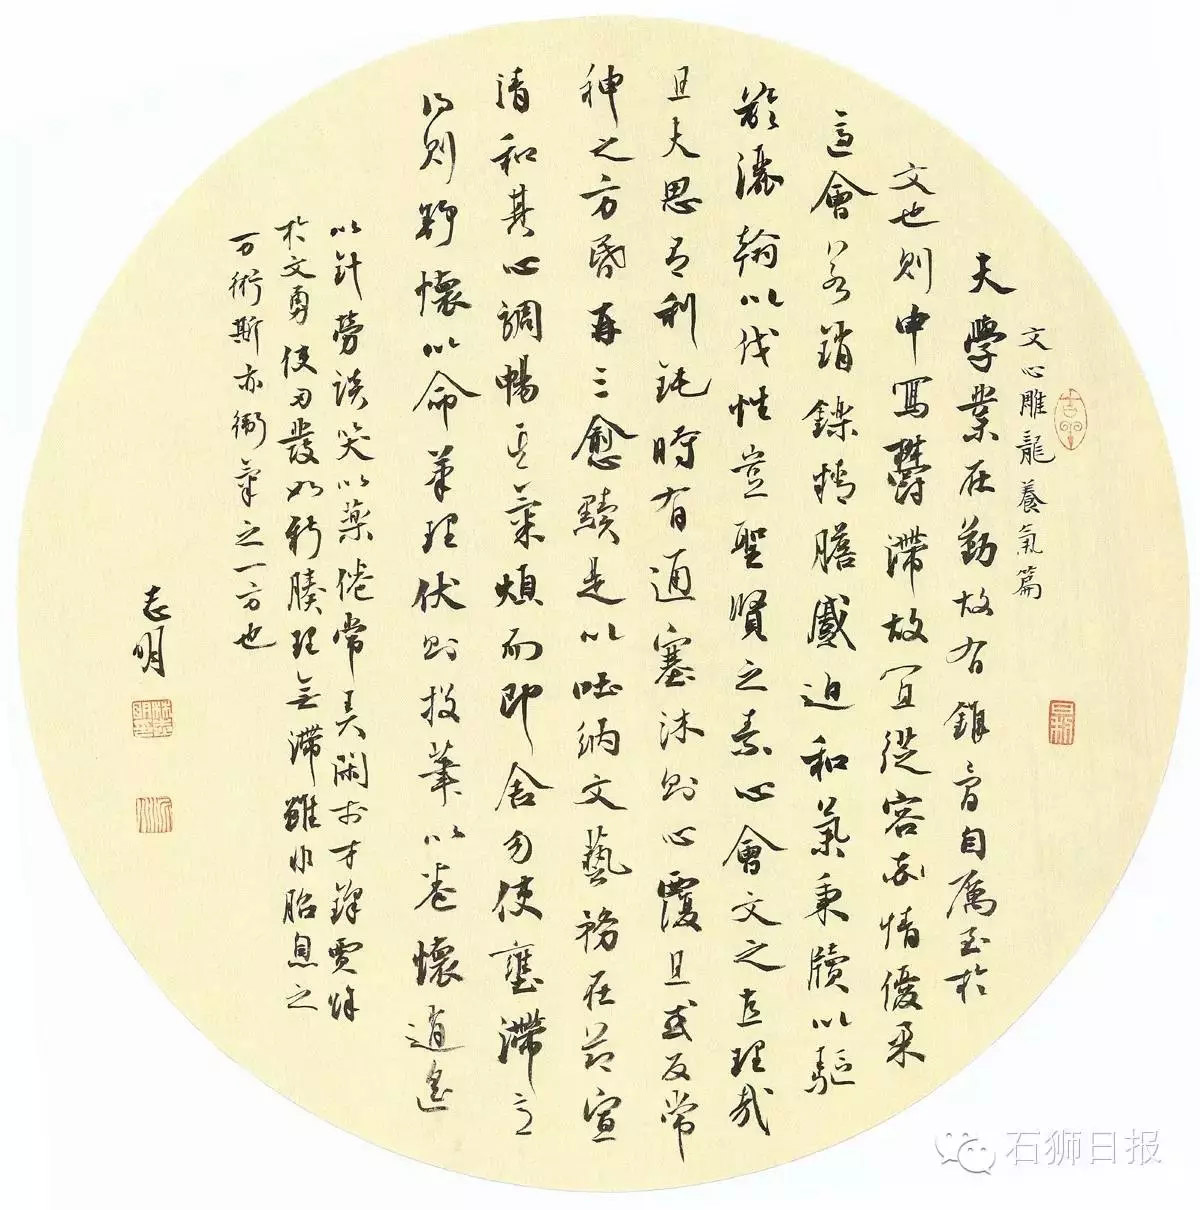 文心雕龍養氣篇
夫學業在勤故有錐骨自厲至於
文也則申寫鬱滯故宜從容率情優柔
適會若銷鑠精膽蹙迫和氣秉牘以驅
齡灑翰以伐性豈聖賢之素心會文之直理哉
且夫思有利鈍時有通塞沐則心覆且或反常
神之方昏再三愈黷是以吐納文藝務在節宣
清和其心調暢其氣煩而即舍勿使壅滯意
得則舒懷以命筆理伏則投筆以卷懷逍遙
以針勞談笑以藥倦常弄閑於才鋒賈餘
於文勇使刃發如新腠理無滯雖非胎息之
万術斯亦衛氣之一方也
志明
石狮日报